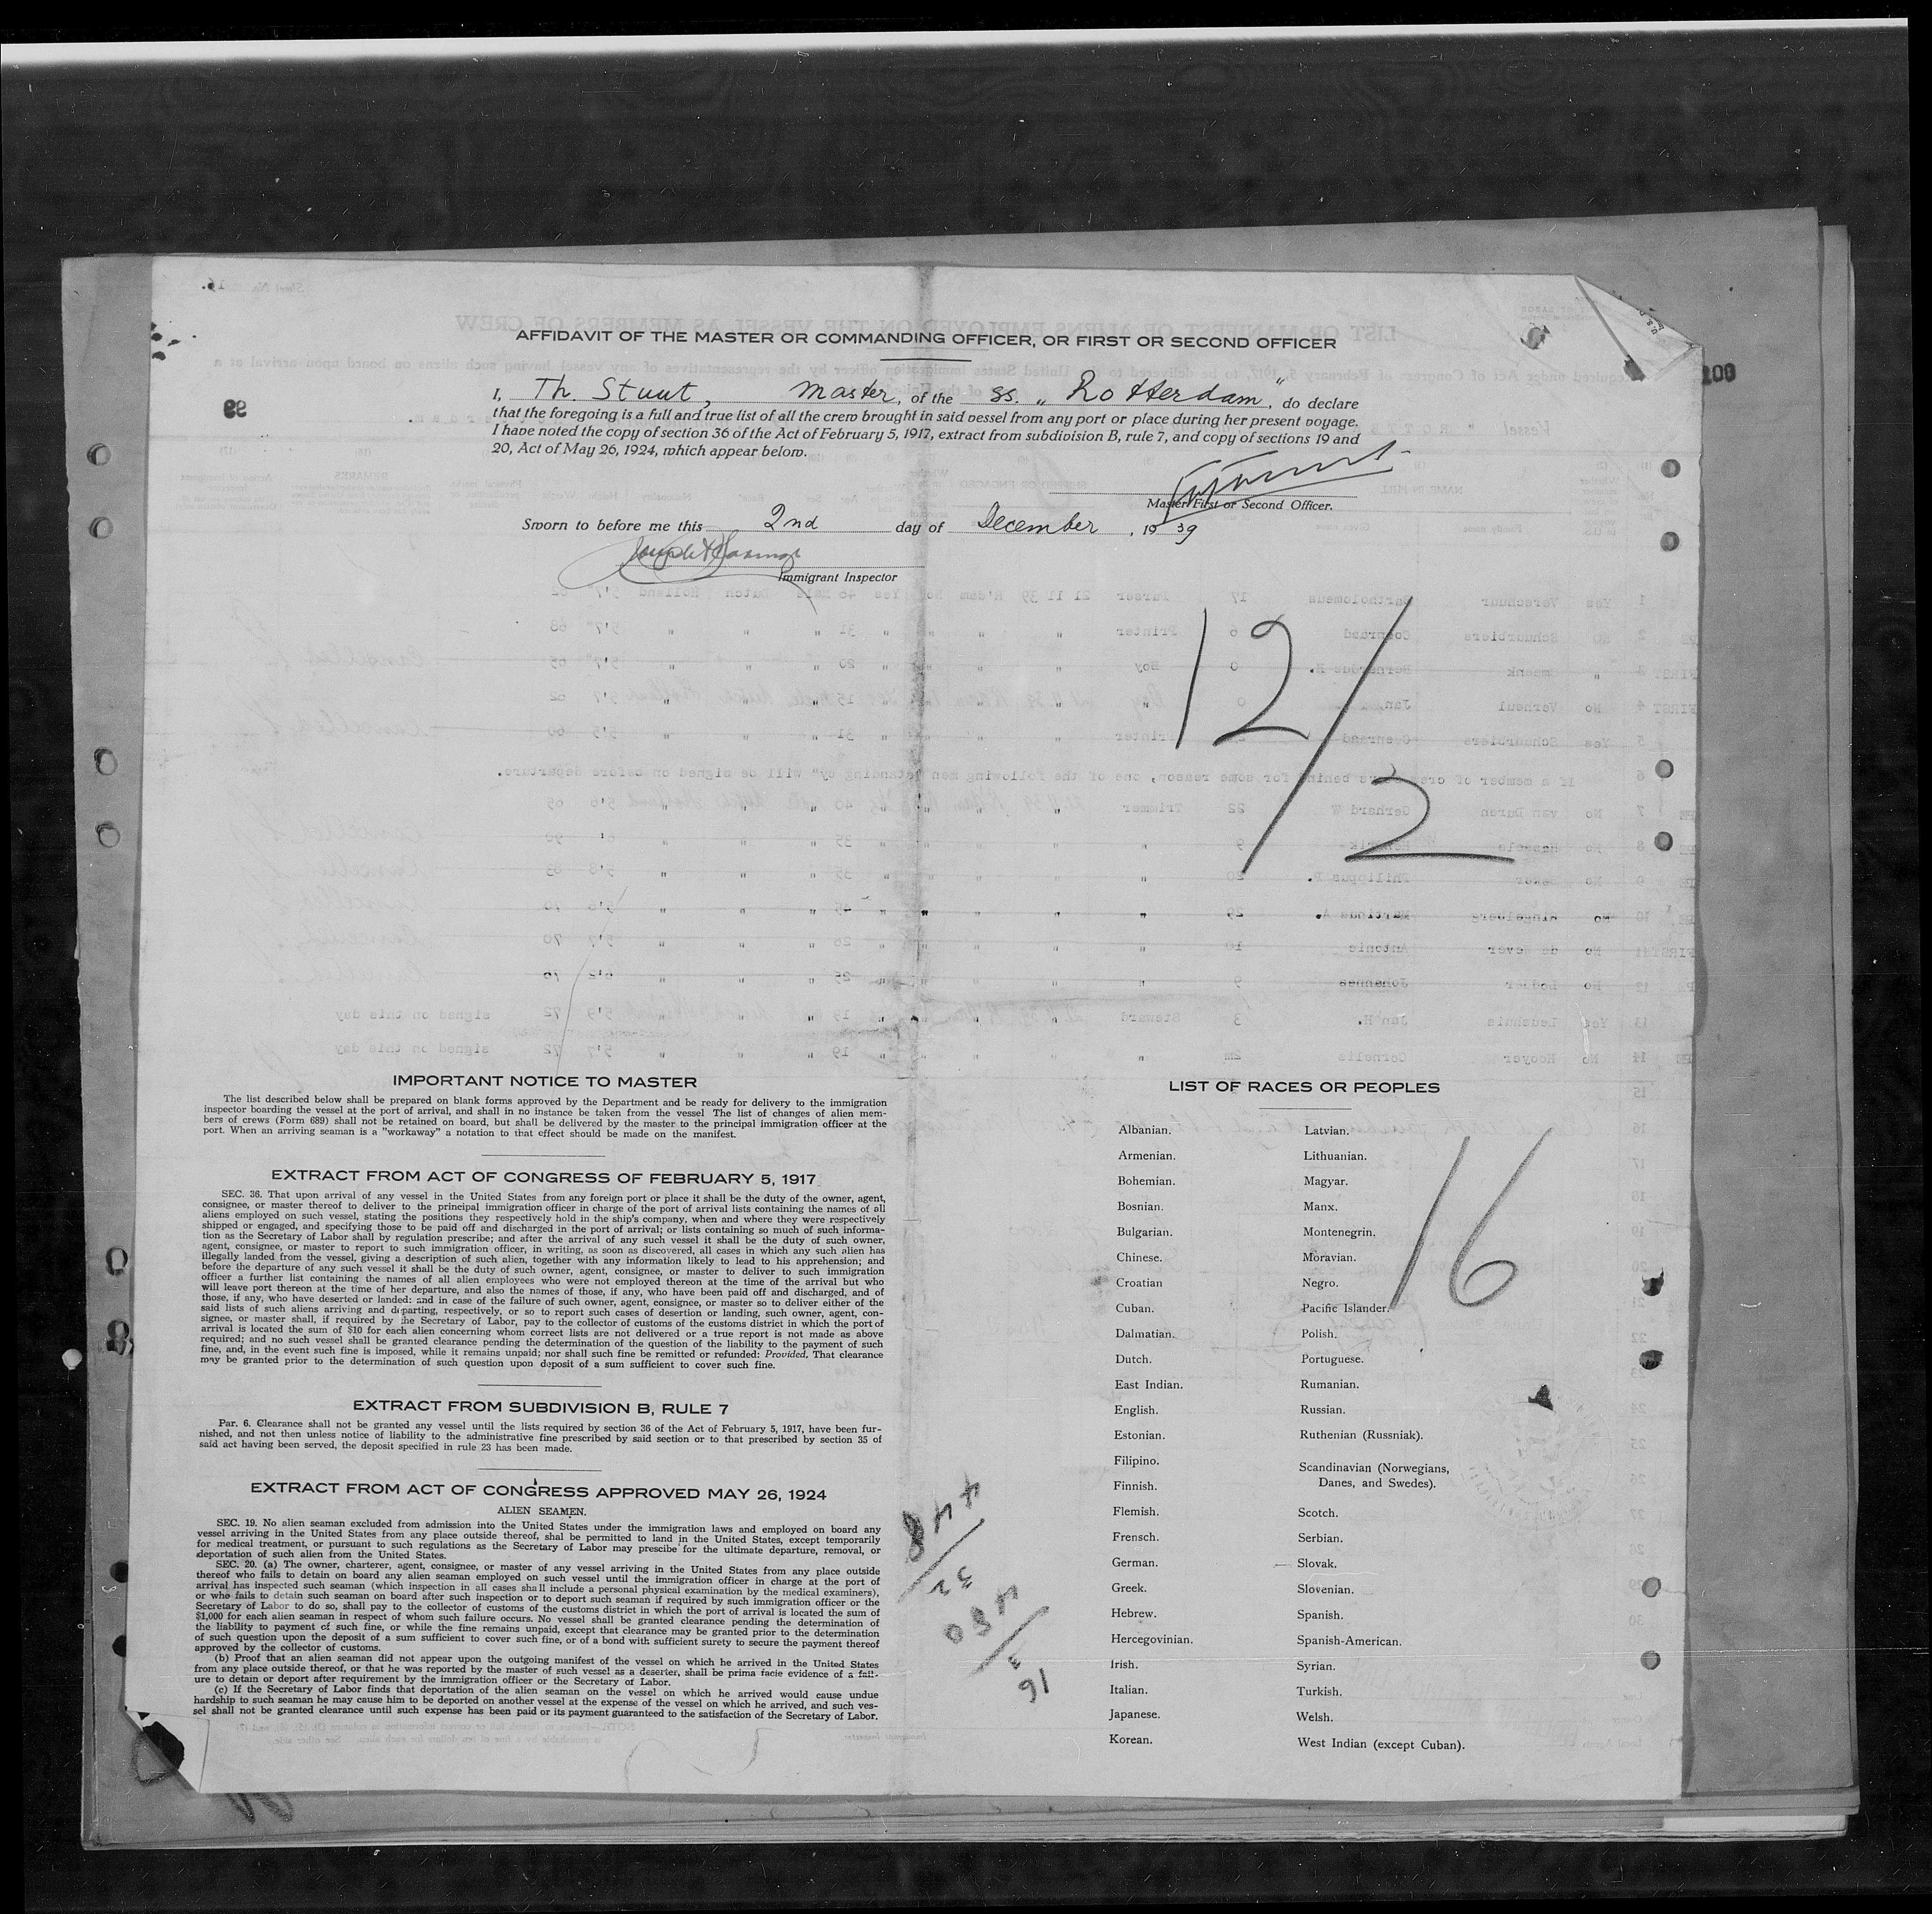 AFFIDAVIT OF THE MASTER OR COMMANDING OFFICER, OR FIRST OR SECOND OFFICER
I, Th. Stuut, Master, of the ss. „ Rotterdam", do declare
that the foregoing is a full and true list of all the crew brought in said vessel from any port or place during her present voyage.
I have noted the copy of section 36 of the Act of February 5, 1917, extract from subdivision B, rule 7, and copy of sections 19 and
20, Act of May 26, 1924, which appear below.
Master First or Second Officer.
Sworn to before me this 2nd day of December, 1939
Immigrant Inspector
12/2
IMPORTANT NOTICE TO MASTER
The list described below shall be prepared on blank forms approved by the Department and be ready for delivery to the immigration
inspector boarding the vessel at the port of arrival, and shall in no instance be taken from the vessel The list of changes of alien mem-
bers of crews (Form 689) shall not be retained on board, but shall be delivered by the master to the principal immigration officer at the
port. When an arriving seaman is a "workaway" a notation to that effect should be made on the manifest.
EXTRACT FROM ACT OF CONGRESS OF FEBRUARY 5, 1917
SEC. 36. That upon arrival of any vessel in the United States from any foreign port or place it shall be the duty of the owner, agent,
consignee, or master thereof to deliver to the principal immigration officer in charge of the port of arrival lists containing the names of all
aliens employed on such vessel, stating the positions they respectively hold in the ship's company, when and where they were respectively
shipped or engaged, and specifying those to be paid off and discharged in the port of arrival; or lists containing so much of such informa-
tion as the Secretary of Labor shall by regulation prescribe; and after the arrival of any such vessel it shall be the duty of such owner,
agent, consignee, or master to report to such immigration officer, in writing, as soon as discovered, all cases in which any such alien has
illegally landed from the vessel, giving a description of such alien, together with any information likely to lead to his apprehension; and
before the departure of any such vessel it shall be the duty of such owner, agent, consignee, or master to deliver to such immigration
officer a further list containing the names of all alien employees who were not employed thereon at the time of the arrival but who
will leave port thereon at the time of her departure, and also the names of those, if any, who have been paid off and discharged, and of
those, if any, who have deserted or landed: and in case of the failure of such owner, agent, consignee, or master so to deliver either of the
said lists of such aliens arriving and departing, respectively, or so to report such cases of desertion or landing, such owner, agent, con-
signee, or master shall, if required by the Secretary of Labor, pay to the collector of customs of the customs district in which the port of
arrival is located the sum of $10 for each alien concerning whom correct lists are not delivered or a true report is not made as above
required; and no such vessel shall be granted clearance pending the determination of the question of the liability to the payment of such
fine, and, in the event such fine is imposed, while it remains unpaid; nor shall such fine be remitted or refunded: Provided, That clearance
may be granted prior to the determination of such question upon deposit of a sum sufficient to cover such fine.
EXTRACT FROM SUBDIVISION B, RULE 7
Par. 6. Clearance shall not be granted any vessel until the lists required by section 36 of the Act of February 5, 1917, have been fur-
nished, and not then unless notice of liability to the administrative fine prescribed by said section or to that prescribed by section 35 of
said act having been served, the deposit specified in rule 23 has been made.
EXTRACT FROM ACT OF CONGRESS APPROVED MAY 26, 1924
ALIEN SEAMEN.
SEC. 19. No alien seaman excluded from admission into the United States under the immigration laws and employed on board any
vessel arriving in the United States from any place outside thereof, shal be permitted to land in the United States, except temporarily
for medical treatment, or pursuant to such regulations as the Secretary of Labor may prescibe for the ultimate departure, removal, or
deportation of such alien from the United States.
SEC. 20. (a) The owner, charterer, agent, consignee, or master of any vessel arriving in the United States from any place outside
thereof who fails to detain on board any alien seaman employed on such vessel until the immigration officer in charge at the port of
arrival has inspected such seaman (which inspection in all cases shall include a personal physical examination by the medical examiners),
or who fails to detain such seaman on board after such inspection or to deport such seaman if required by such immigration officer or the
Secretary of Labor to do so, shall pay to the collector of customs of the customs district in which the port of arrival is located the sum of
$1,000 for each alien seaman in respect of whom such failure occurs. No vessel shall be granted clearance pending the determination of
the liability to payment of such fine, or while the fine remains unpaid, except that clearance may be granted prior to the determination
of such question upon the deposit of a sum sufficient to cover such fine, or of a bond with sufficient surety to secure the payment thereof
approved by the collector of customs.
(b) Proof that an alien seaman did not appear upon the outgoing manifest of the vessel on which he arrived in the United States
from any place outside thereof, or that he was reported by the master of such vessel as a deserter, shall be prima facie evidence of a fail-
ure to detain or deport after requirement by the immigration officer or the Secretary of Labor.
(c) If the Secretary of Labor finds that deportation of the alien seaman on the vessel on which he arrived would cause undue
hardship to such seaman he may cause him to be deported on another vessel at the expense of the vessel on which he arrived, and such ves-
sel shall not be granted clearance until such expense has been paid or its payment guaranteed to the satisfaction of the Secretary of Labor.
448
32
480
3
16
LIST OF RACES OR PEOPLES
16
Albanian.
Armenian.
Bohemian.
Bosnian.
Bulgarian.
Chinese.
Croatian
Cuban.
Dalmatian.
Dutch.
East Indian.
English.
Estonian.
Filipino.
Finnish.
Flemish.
Frensch.
German.
Greek.
Hebrew.
Hercegovinian.
Irish.
Italian.
Japanese.
Korean.
Latvian.
Lithuanian.
Magyar.
Manx.
Montenegrin.
Moravian.
Negro.
Pacific Islander.
Polish.
Portuguese.
Rumanian.
Russian.
Ruthenian (Russniak).
Scandinavian (Norwegians,
Danes, and Swedes).
Scotch.
Serbian.
Slovak.
Slovenian.
Spanish.
Spanish-American.
Syrian.
Turkish.
Welsh.
West Indian (except Cuban).